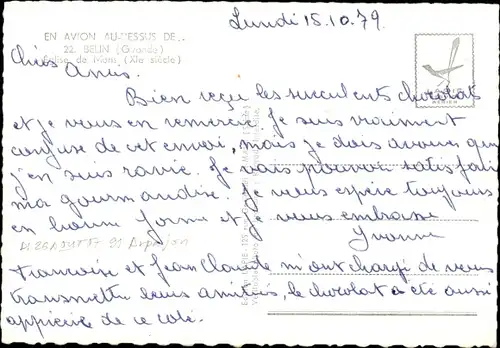 Lundi 15.10.79
EN AVION AU-DESSUS DE...
22. BELIN (Gironde)
Eglise de Mons (XIe siècle)
Chers Amis.
Bien reçu les succulents chocolats
et je vous en remercie. Je suis vraiment
confuse de cet envoi, mais je dois avouer que
j'en suis ravie. Je vais pouvoir satisfaire
ma gourmandise. Je vous espère toujours
en bonne forme et je vous embrasse
Yvonne
Françoise et Jean Claude m'ont chargé de vous
transmettre leurs amitiés, le chocolat a été aussi
apprécié de ce côté.